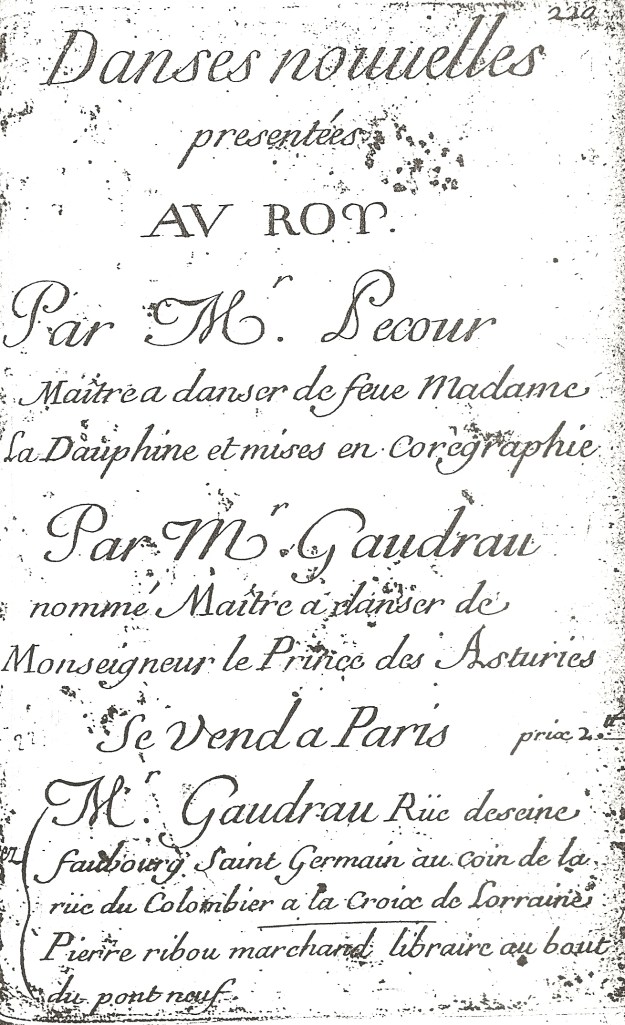 220
Danses nouuelles
presentées
AV ROY.
Par Mr. Pecour
Maître a danser de feue Madame
La Dauphine et mises en Coregraphie
Par Mr. Gaudrau
nommé Maître a danser de
Monseigneur le Prince des Asturies
Se Vend a Paris prix 2.tt
Mr. Gaudrau Rüe deseine
faubourg Saint Germain au coin de la
rüe du Colombier a la Croix de Lorraine
Pierre ribou marchand libraire au bout
du pont neuf